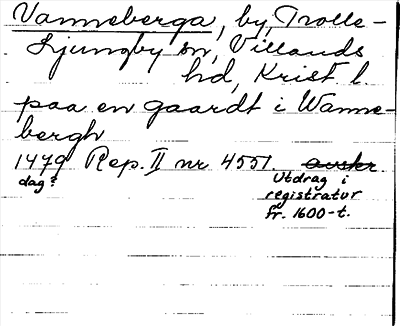 Vanneberga, by, Trolle-
Ljungby sn, Villands
hd, Krist l.
paa en gaardt i Wanne-
bergh
1479 Rep. II nr 4551. avskr
dag? Utdrag i
registratur
fr. 1600-t.